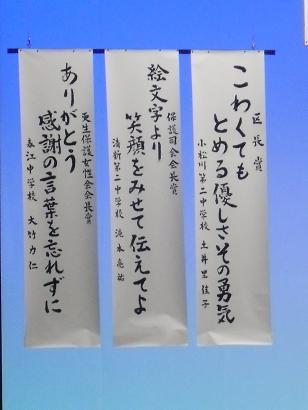 区長賞
こわくても
とめる優しさその勇気
小松川第二中学校 土井里佳子
保護司会会長賞
絵文字より
笑顔をみせて伝えてよ
清新第二中学校 池永亮祐
更生保護女性会会長賞
ありがとう
感謝の言葉を忘れずに
春江中学校 大竹力仁